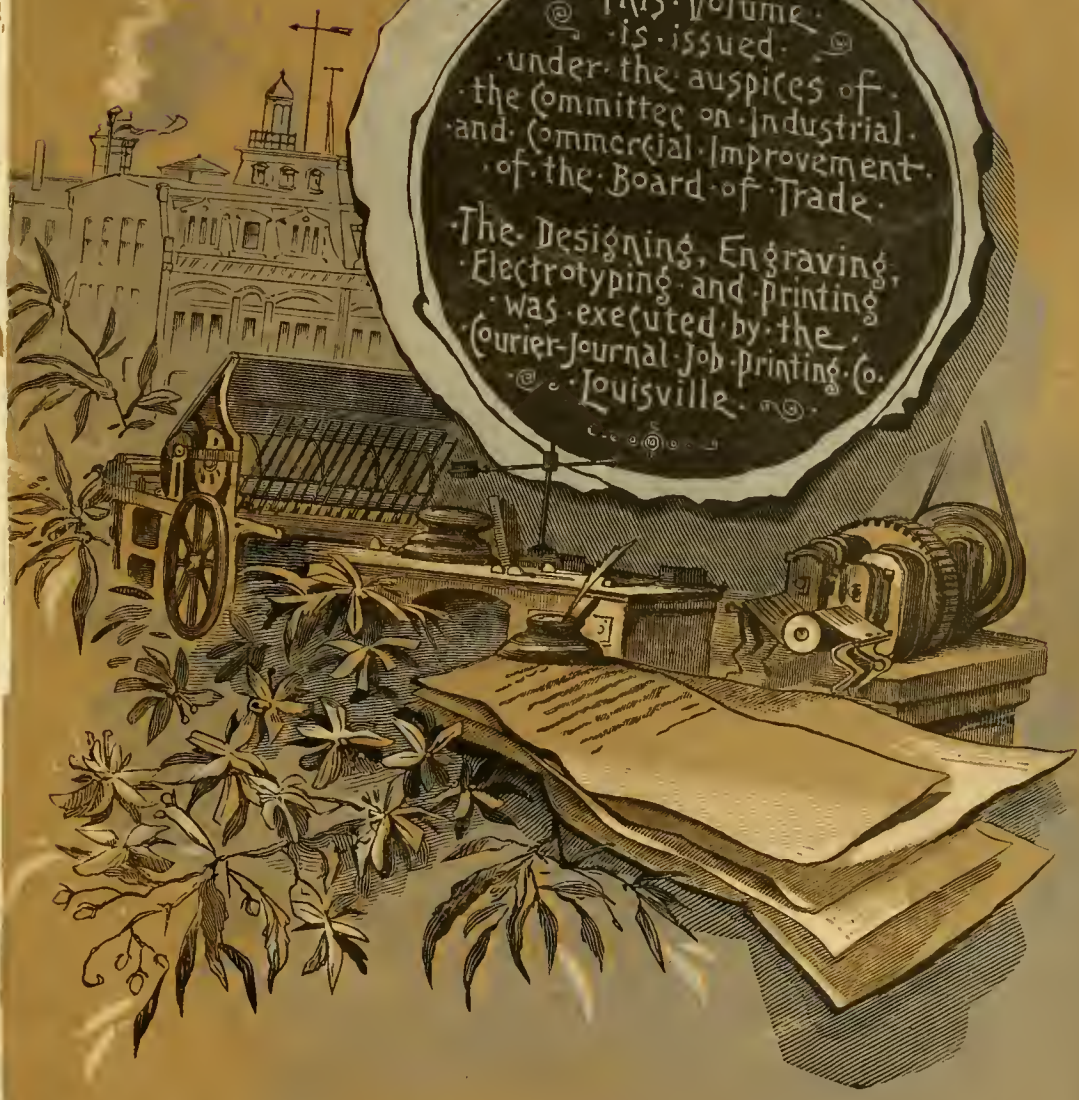 This · Volume ·
· is · issued ·
· under · the · auspices of ·
· the Committee on · Industrial ·
· and · Commercial · Improvement ·
· of · the · Board · of · Trade ·
· The · Designing, Engraving,
· Electrotyping · and · printing
· was · executed · by · the ·
Courier-Journal · Job · printing · Co.
· Louisville ·